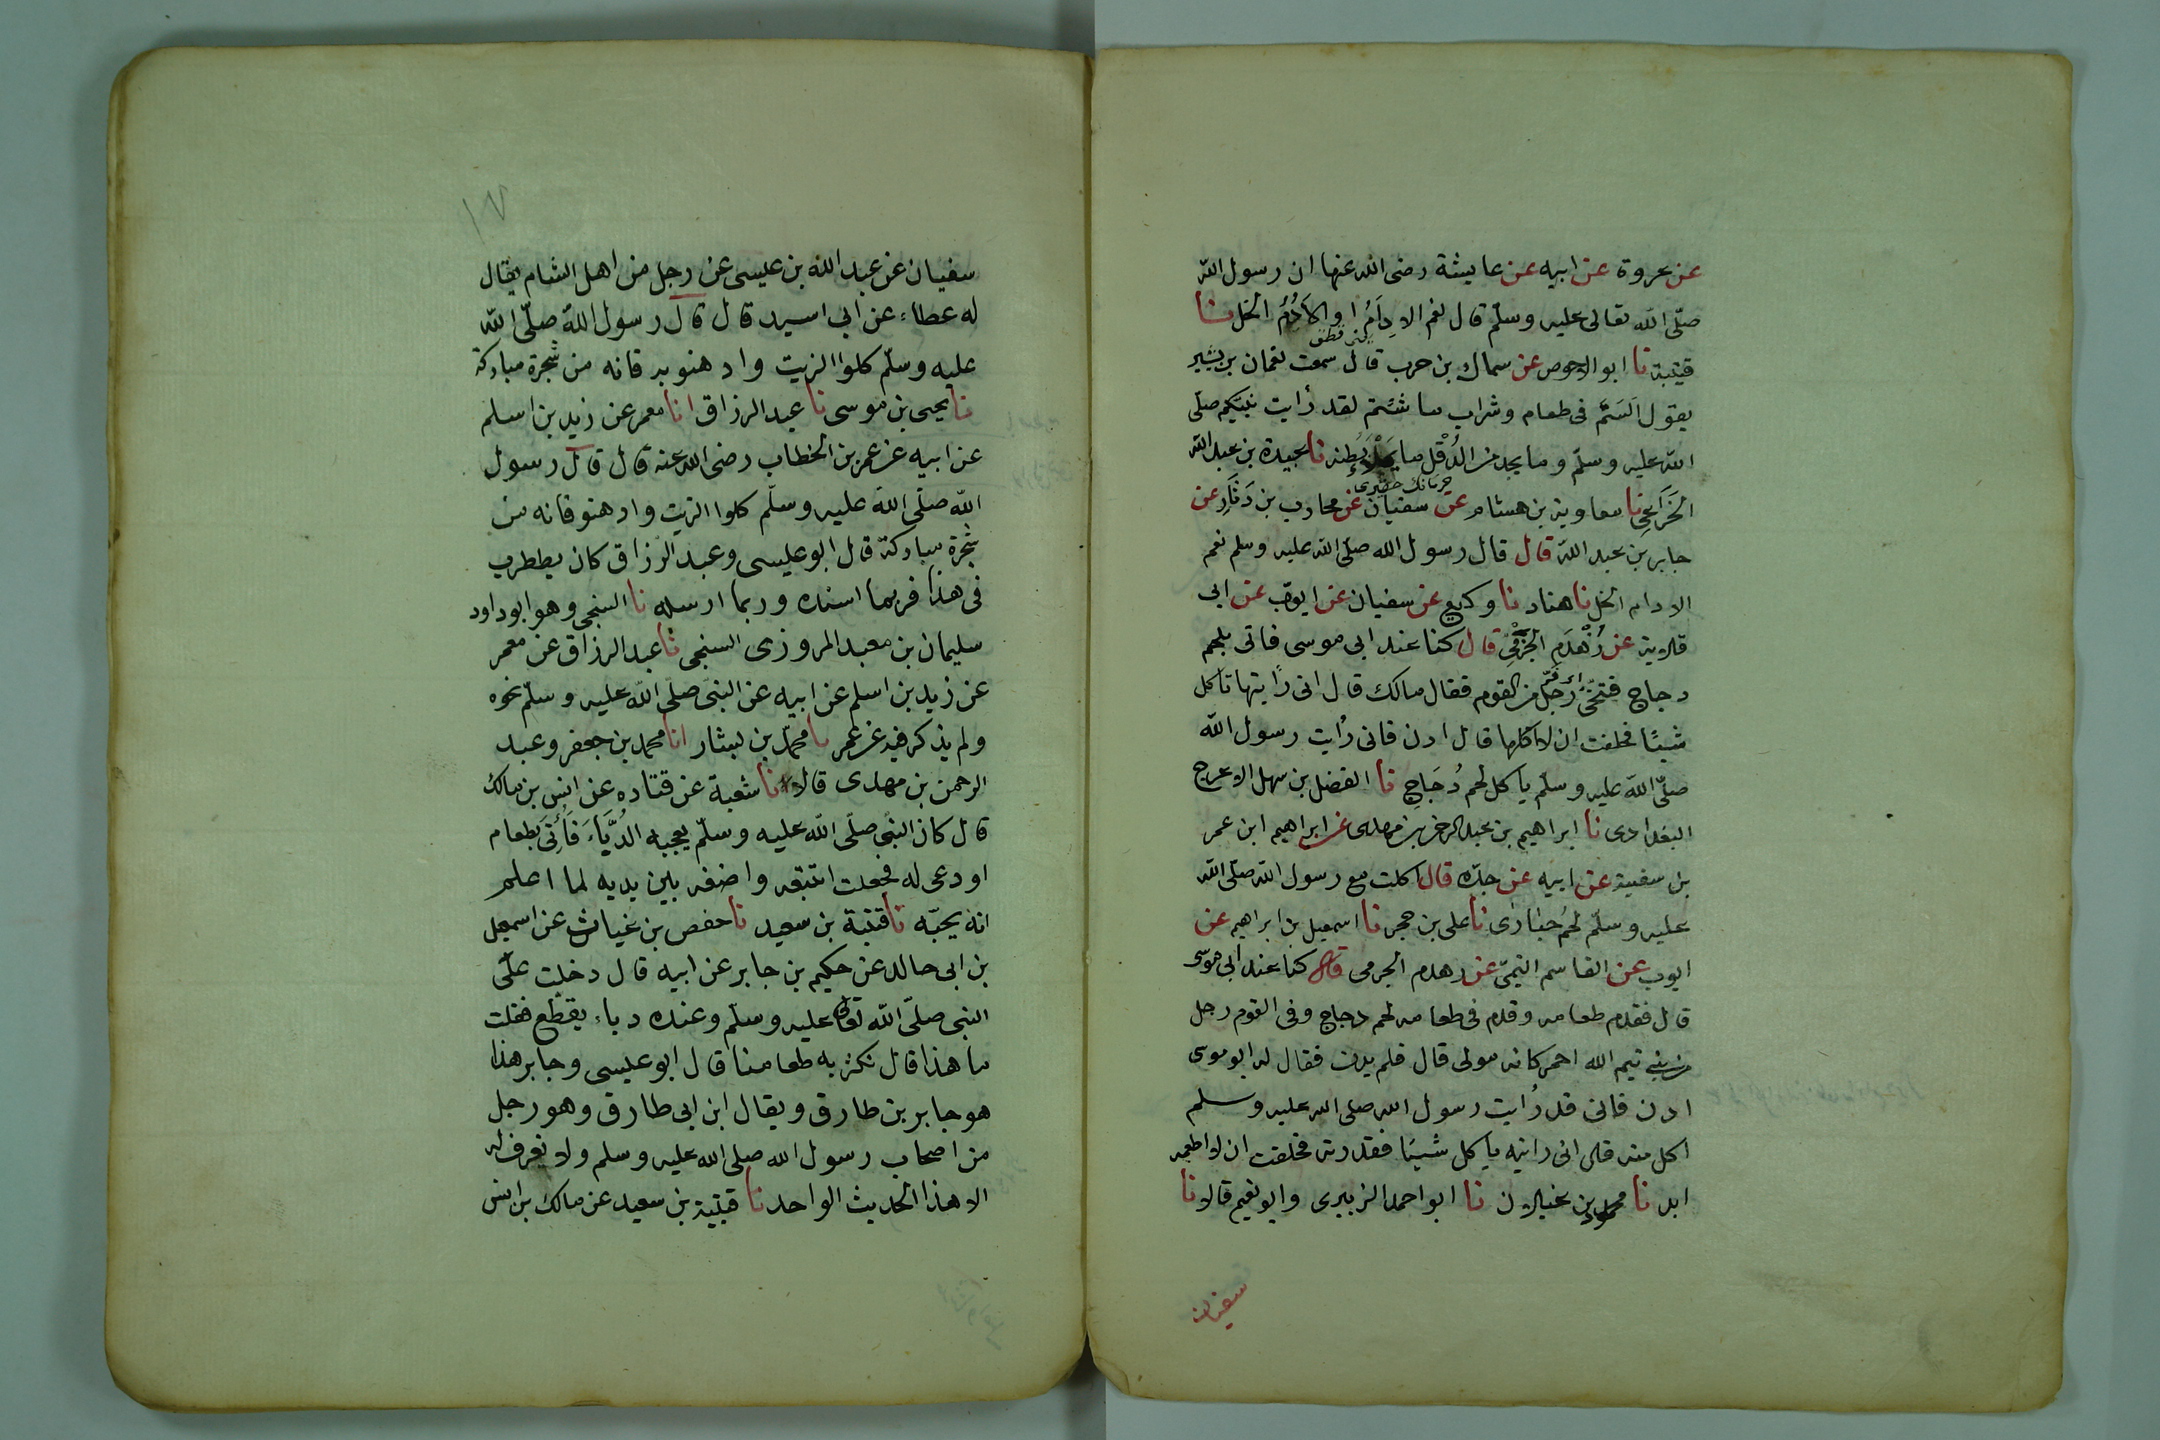 عن عروة عن ابيه عن عايشة رضى الله عنها ان رسول الله
صلّى الله تعالى عليه وسلّم قال نعم الادِامُ او الاُدُمُ الخل نا
قتيبة نا ابو الاحوص عن سماك بن حرب قال سمعت نعمان بن بشير
يقول اَلَسْتُم فى طعام وشراب ما شئتم لقد رأيت نبيّكم صلّى
الله عليه وسلّم وما يجد من الدَّقَلِ ما يَمْلاءُ بَطنه نا عبيدة بن عبد الله
الخزاعى نا معاوية بن هشام عن سفيان عن محارب بن دَثَارِ عن
جابر بن عبد الله قال قال رسول الله صلّى الله عليه وسلم نعم
الادام الخل نا هناد نا وكيع عن سفيان عن ايوب عن ابى
قلابة عن زَهْدَمِ الجَرْمِىِّ قال كنا عند ابى موسى فاتى بلحم
دجاج فتنحّى رَجل من القوم فقال مالك قال انى رأيتها تاكل
شيئًا فحلفت ان لا اكلها قال ادن فانى رأيت رسول الله
صلّى الله عليه وسلّم ياكل لحم دُجَاجٍ نا الفضل بن سهل الاعرج
البغدادى نا ابراهيم بن عبد الرحمن بن مهدى عن ابراهيم ابن عمر
بن سفينة عن ابيه عن جدّه قال اكلت مع رسول الله صلّى الله
عليه وسلّم لحم حبارى نا على بن حجر نا اسمعيل بن ابراهيم عن
ايوب عن القاسم التيمىّ عن زهدم الجرمى قال كنا عند ابى موسى
قال فقدم طعامه وقدم فى طعامه لحم دجاج وفى القوم رجل
من بنى تيم الله احمر كانه مولى قال فلم يدن فقال له ابو موسى
ادن فانى قد رأيت رسول الله صلى الله عليه وسلم
اكل منه قال انى رايته ياكل شيئا فقذرته فحلفت ان لا اطعمه
ابدا نا محمود بن غيلان نا ابو احمد الزبيرى وابو نعيم قالا نا
سفيان
١٧
سفيان عن عبد الله بن عيسى عن رجل من اهل الشام يقال
له عطاء عن ابى اسيد قال قال رسول الله صلّى الله
عليه وسلّم كلوا الزيت وادهنو به فانه من شجرة مباركة
نا يحيى بن موسى نا عبد الرزاق انا معمر عن زيد بن اسلم
عن ابيه عن عمر بن الخطاب رضى الله عنه قال قال رسول
الله صلّى الله عليه وسلّم كلوا الزيت وادهنو فانه من
شجرة مباركة قال ابو عيسى وعبد الرزاق كان يططرب
فى هذا فربما اسنده وربما ارسله نا السنجى وهو ابو داود
سليمان بن معبد المروزى السنجى نا عبد الرزاق عن معمر
عن زيد بن اسلم عن ابيه عن النبى صلّى الله عليه وسلّم نحوه
ولم يذكر فيه عن عمر نا محمد بن بشار انا محمد بن جعفر وعبد
الرحمن بن مهدى قالا نا شعبة عن قتاده عن انس بن مالك
قال كان النبى صلّى الله عليه وسلّم يعجبه الدُّبَّاءَ فَأُتِىَ بطعام
او دعى له فجعلت اتتبعه واضعه بين يديه لما اعلم
انه يحبّه نا قتيبة بن سعيد نا حفص بن غياث عن اسمعيل
بن ابى خالد عن حكيم بن جابر عن ابيه قال دخلت على
النبى صلّى الله تعالى عليه وسلّم وعنده دباء يقطّع فقلت
ما هذا قال نكثر به طعامنا قال ابو عيسى وجابر هذا
هو جابر بن طارق ويقال ابن ابى طارق وهو رجل
من اصحاب رسول الله صلى الله عليه وسلم ولا نعرف له
الا هذا الحديث الواحد نا قتيبة بن سعيد عن مالك بن انس